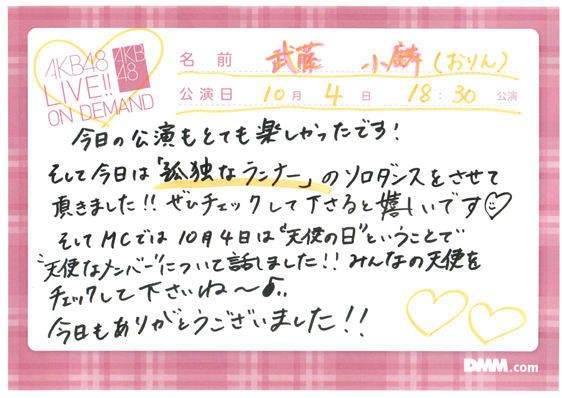 AKB48
LIVE!!
ON DEMAND
AKB
48
名前 武藤 小麟(おりん)
公演日 10月 4日 18:30 公演
今日の公演もとても楽しかったです!
そして今日は「孤独なランナー」のソロダンスをさせて
頂きました!!ぜひチェックして下さると嬉しいです♡
そしてMCでは10月4日は"天使の日"ということで
"天使なメンバー"について話しました!!みんなの天使を
チェックして下さいね〜♪..
今日もありがとうございました!!
DMM.com